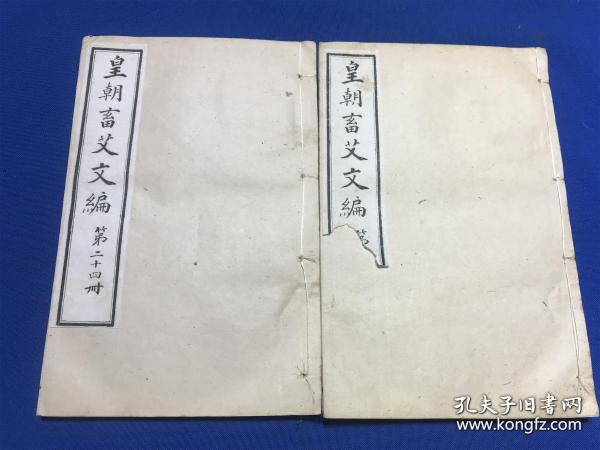 皇朝畜艾文編
第二十四冊
皇朝畜艾文編
第
孔夫子旧書网
www.kongfz.com